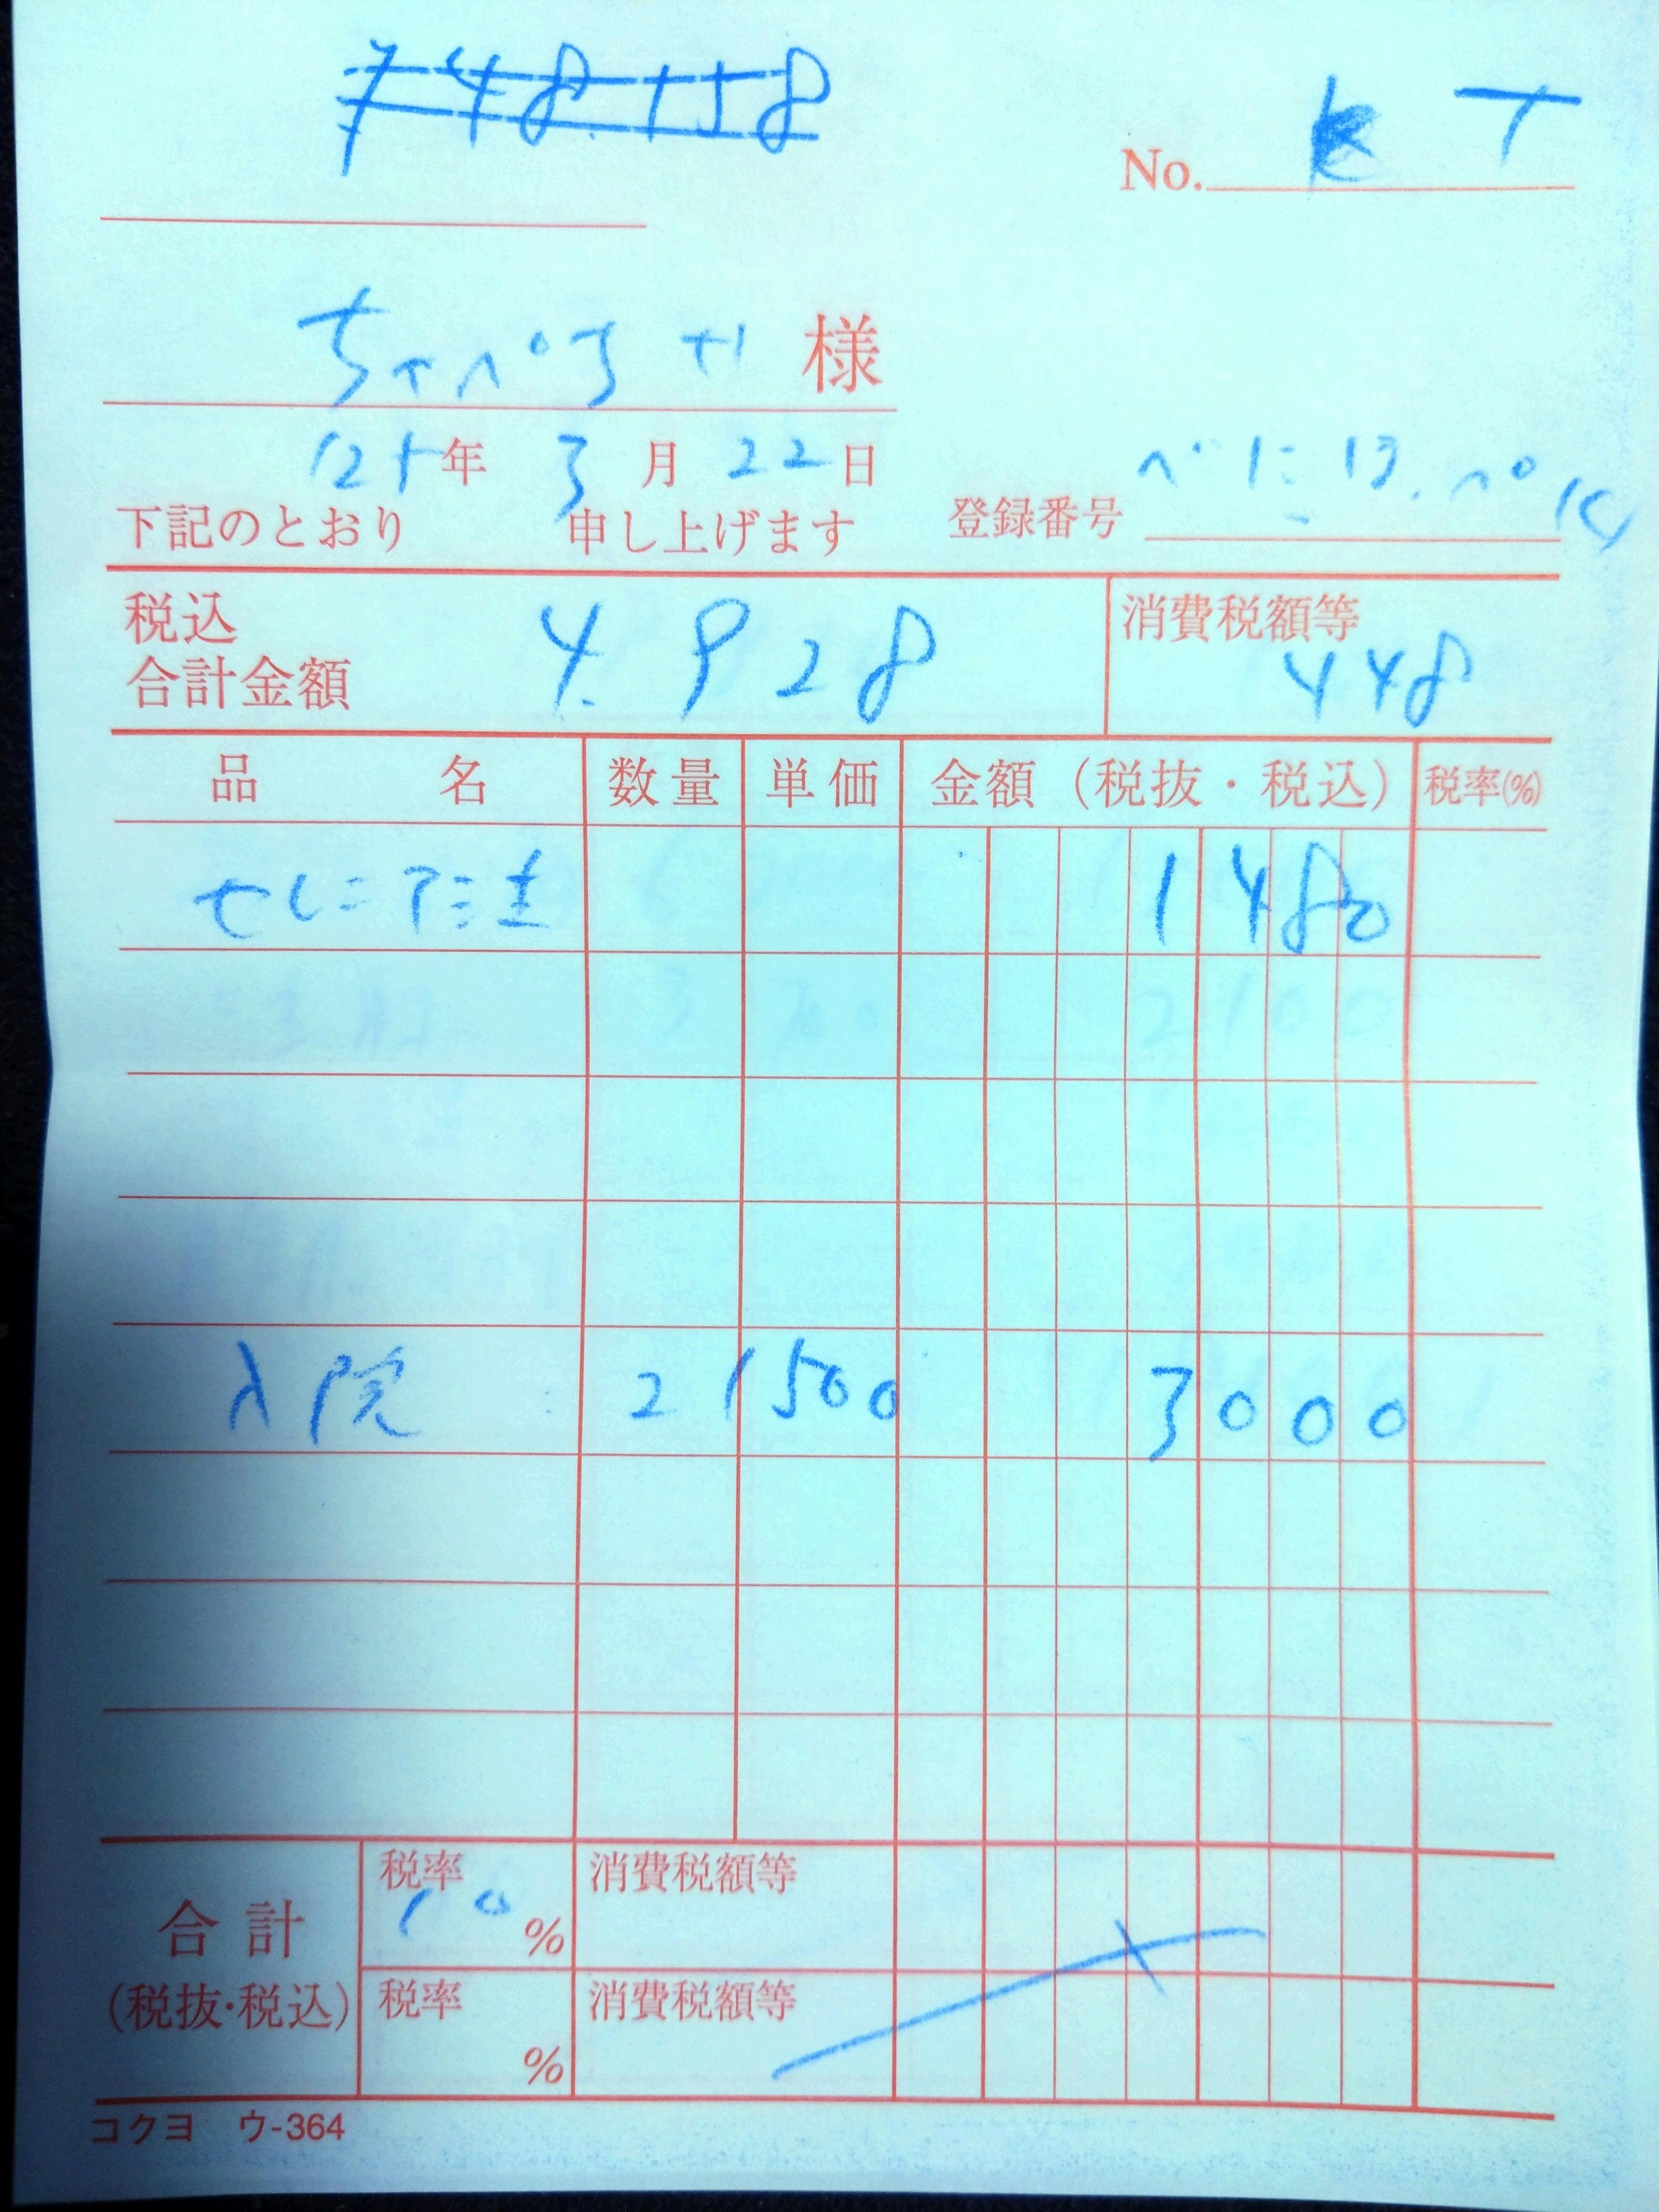 748.158
No. K T
様
年 3月 22日
下記のとおり 申し上げます 登録番号
税込合計金額 4.928 消費税額等 448
品名 数量 単価 金額(税抜・税込) 税率(%)
1480
入院 2 1500 3000
合計(税抜・税込) 税率 10% 消費税額等
税率 % 消費税額等
コクヨ ウ-364